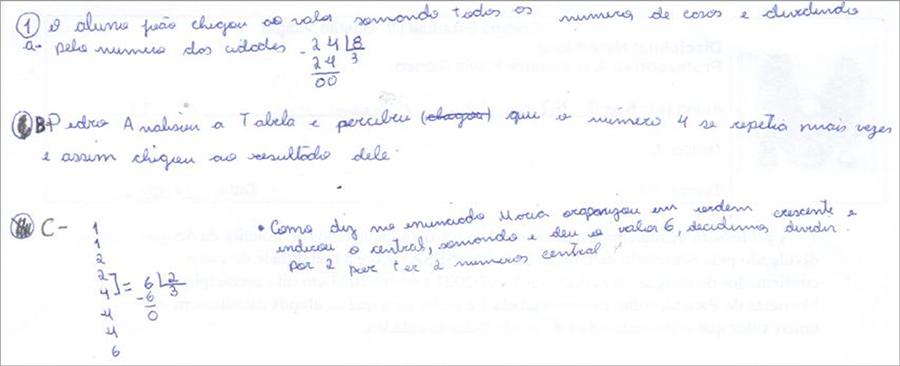 ① O aluno João chegou ao valor somando todos os numero de casos e dividindo
a- pelo numero das cidades - 24 | 8
24 3
00
B- Pedro Analisou a Tabela e percebeu (chegou) que o numero 4 se repetia mais vezes
e assim chegou ao resultado dele.
C- 1
1
2
2
4 ] = 6 | 2
-6 3
0
4
4
6
• Como diz no enunciado Maria organizou em ordem crescente e
indicou o central, somando e deu o valor 6, decidimos dividir
por 2 por ter 2 numeros central